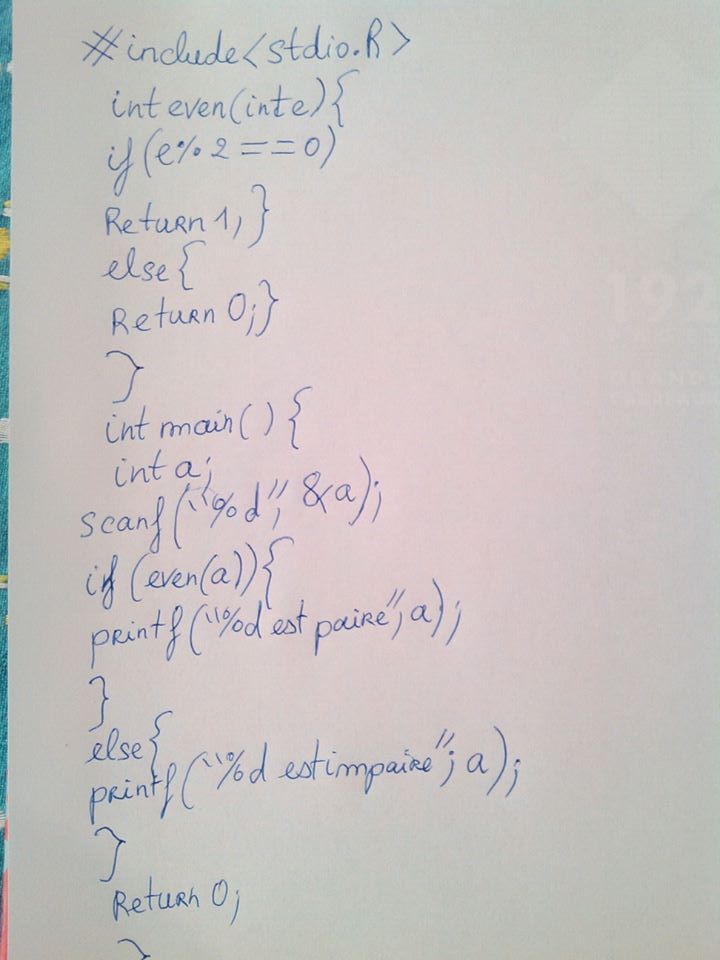 #include<stdio.h>
int even(int e){
if(e%2==0)
Return 1,}
else{
Return 0;}
}
int main(){
int a;
scanf("%d", &a);
if (even(a)){
printf("%d est paire", a);
}
else{
printf("%d est impaire"; a);
}
Return 0;
}
192
PAGES
GRANDS